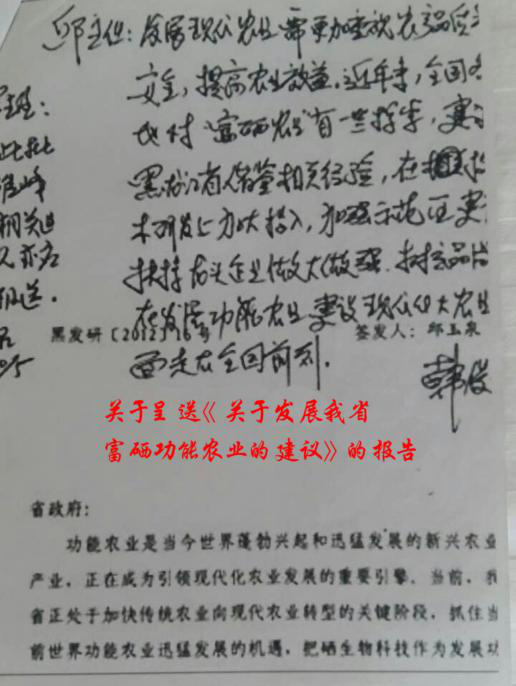 邱主任：发展现代农业需更加重视农产品质
安全，提高农业效益。近年来，全国各
地对“富硒农业”有一些探索，建议
黑龙江省借鉴相关经验，在
术研发上加大投入，加强示范
扶持龙头企业做大做强，
在发展功能农业、建设现代化大农业
面走在全国前列。
黑发研〔2012〕16号 签发人：邱玉泉
韩俊
关于呈送《关于发展我省
富硒功能农业的建议》的报告
省政府：
功能农业是当今世界蓬勃兴起和迅猛发展的新兴农业
产业，正在成为引领现代化农业发展的重要引擎。当前，我
省正处于加快传统农业向现代农业转型的关键阶段，抓住当
前世界功能农业迅猛发展的机遇，把硒生物科技作为发展功